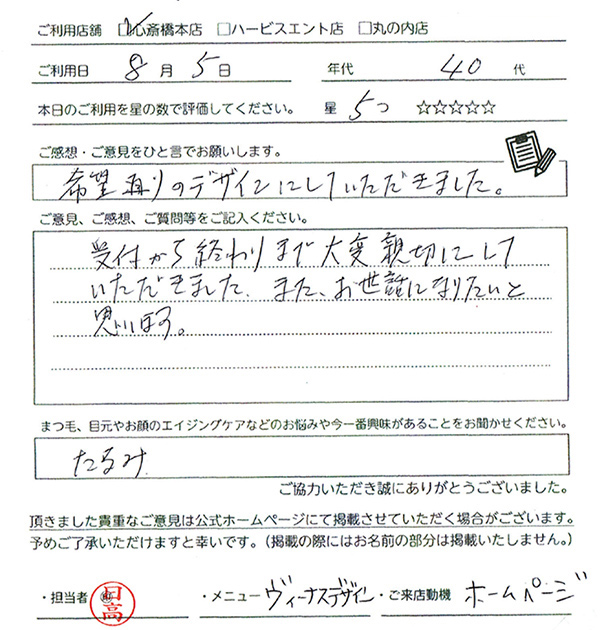 ご利用店舗 □心斎橋本店 □ハービスエント店 □丸の内店
ご利用日 8月 5日 年代 40代
本日のご利用を星の数で評価してください。 星 5つ ☆☆☆☆☆
ご感想・ご意見をひと言でお願いします。
希望通りのデザインにしていただきました。
ご意見、ご感想、ご質問等をご記入ください。
受付から終わりまで大変親切にして
いただきました。また、お世話になりたいと
思います。
まつ毛、目元やお顔のエイジングケアなどのお悩みや今一番興味があることをお聞かせください。
たるみ
ご協力いただき誠にありがとうございました。
頂きました貴重なご意見は公式ホームページにて掲載させていただく場合がございます。
予めご了承いただけますと幸いです。(掲載の際にはお名前の部分は掲載いたしません。)
・担当者 日高 ・メニュー ヴィーナスデザイン ・ご来店動機 ホームページ